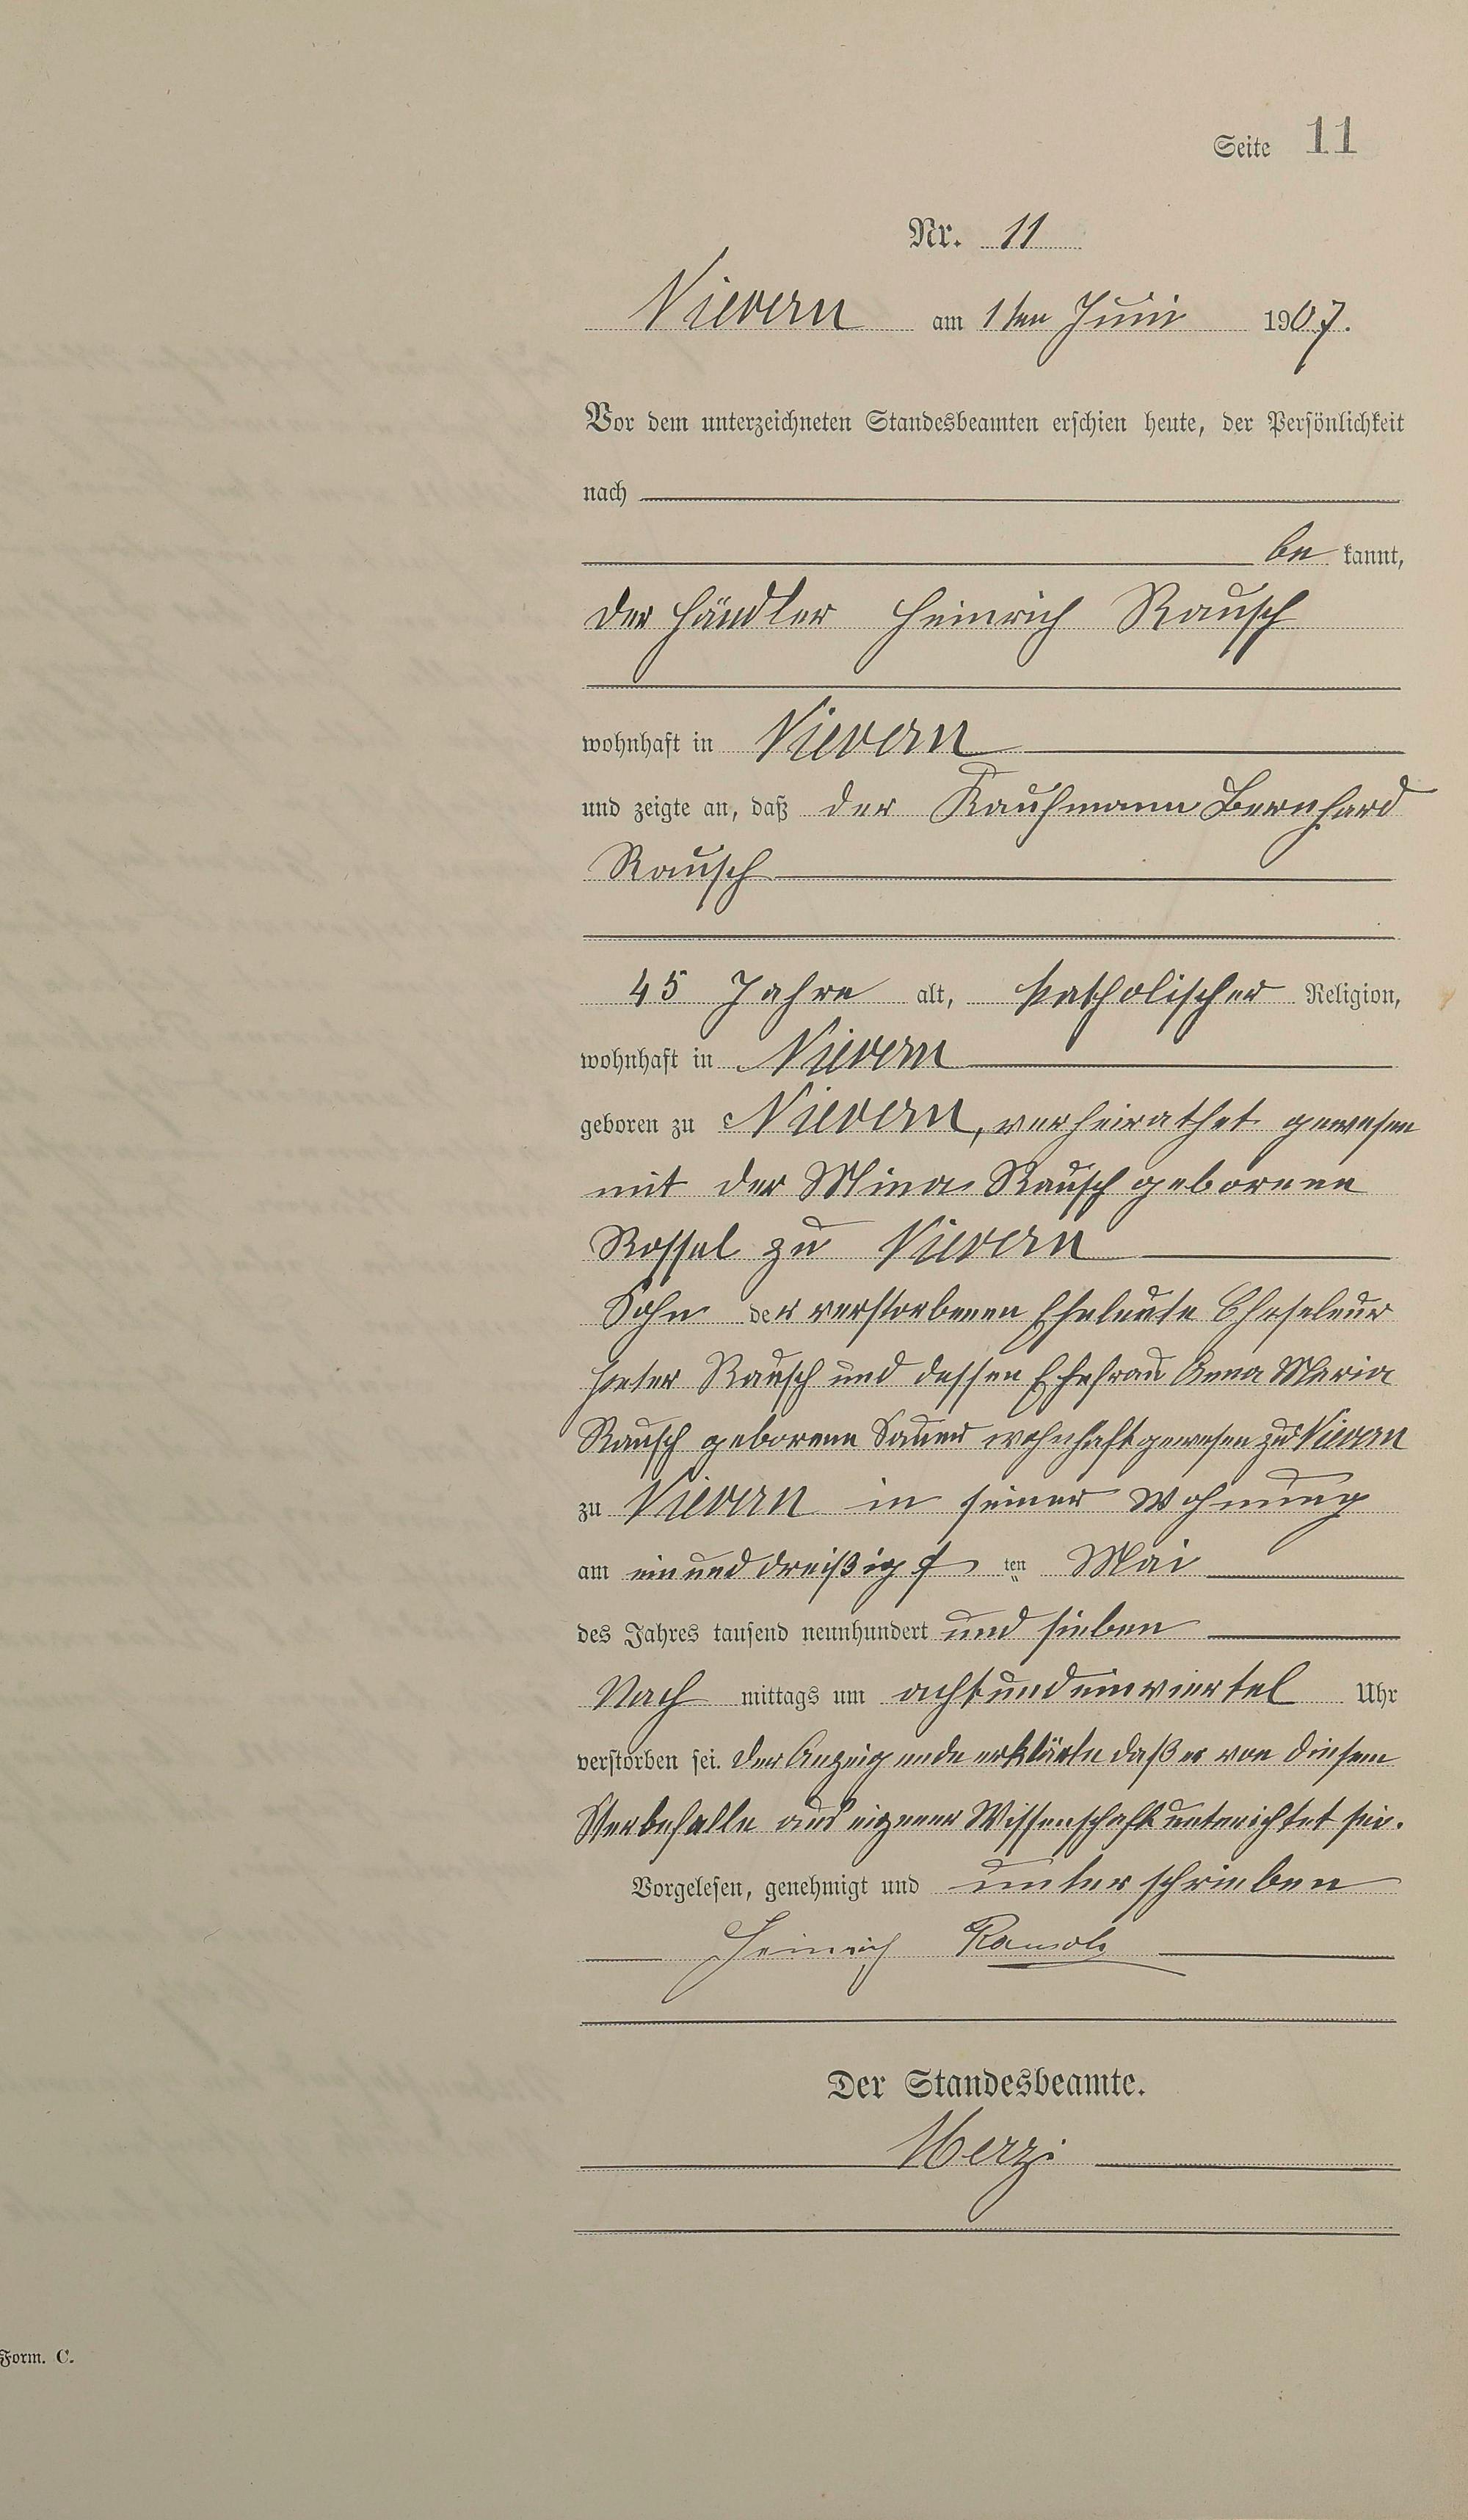 Seite 11
Nr. 11
Nievern am 1ten Juni 1907.
Vor dem unterzeichneten Standesbeamten erschien heute, der Persönlichkeit
nach
be kannt,
der Händler Heinrich Rausch
wohnhaft in Nievern
und zeigte an, daß der Kaufmann Bernhard
Rausch
45 Jahre alt, katholischer Religion,
wohnhaft in Nievern
geboren zu Nievern, verheirathet gewesen
mit der Mina Rausch geborenen
Rossel zu Nievern
Sohn der verstorbenen Eheleute
Peter Rausch und dessen Ehefrau Anna Maria
Rausch geborene Sauer wohnhaft gewesen zu Nievern
zu Nievern in seiner Wohnung
am einunddreißigs ten Mai
des Jahres tausend neunhundert und sieben
Nach mittags um achtundeinviertel Uhr
verstorben sei. Der Anzeigende erklärte daß er von diesem
Sterbefalle aus eigener Wissenschaft unterichtet sei.
Vorgelesen, genehmigt und unterschrieben
Heinrich Rausch
Der Standesbeamte.
Form. C.